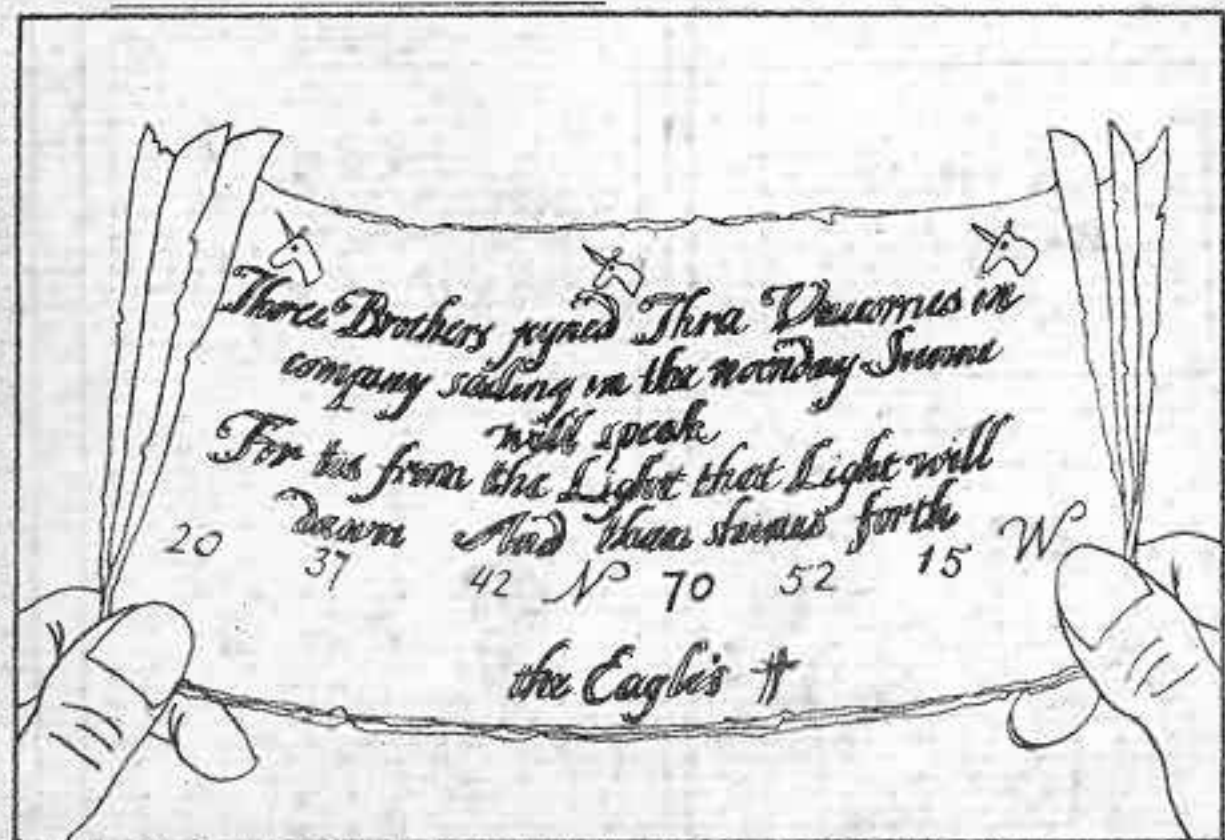 Three Brothers joyned Three Unicornes in
company sailing in the noonday Sunne
will speak
For tis from the Light that Light will
dawn And then shines forth
20 37 42 N 70 52 15 W
the Eagle's ‡